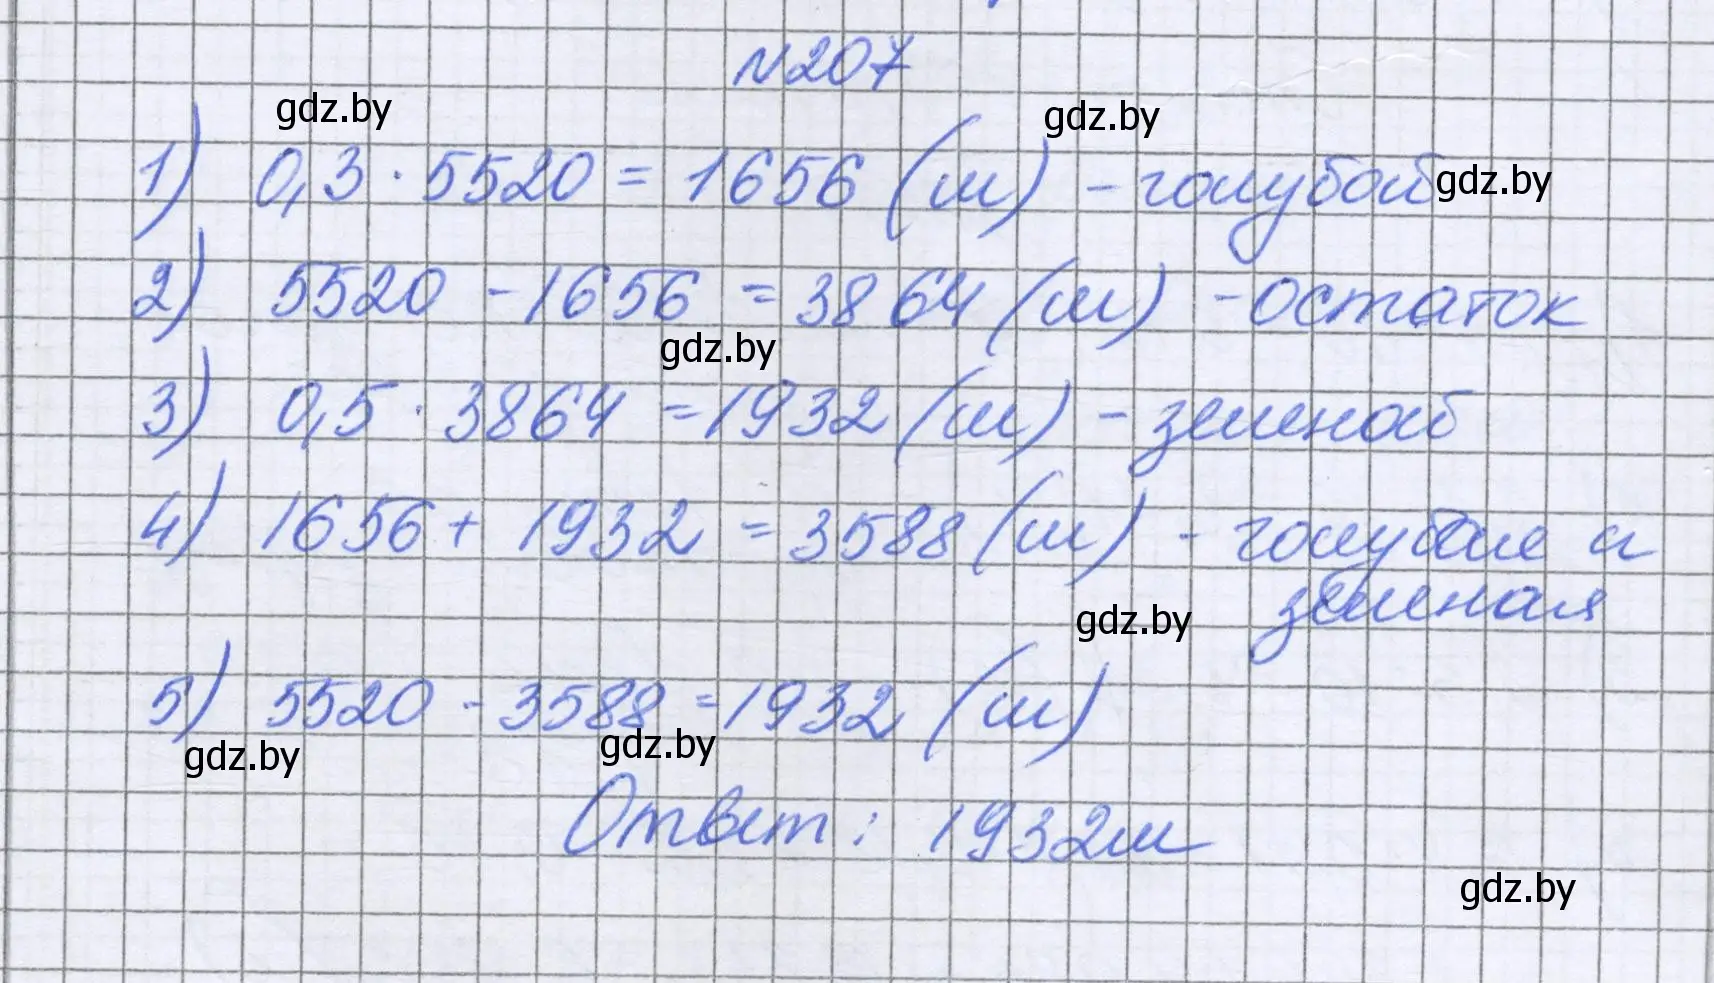 №207
gdz.by gdz.by
1) 0,3 · 5520 = 1656 (м) - голубой gdz.by
2) 5520 - 1656 = 3864 (м) - остаток
gdz.by
3) 0,5 · 3864 = 1932 (м) - зеленой
4) 1656 + 1932 = 3588 (м) - голубая и
зеленая
gdz.by
5) 5520 - 3588 = 1932 (м)
gdz.by gdz.by
Ответ: 1932м
gdz.by